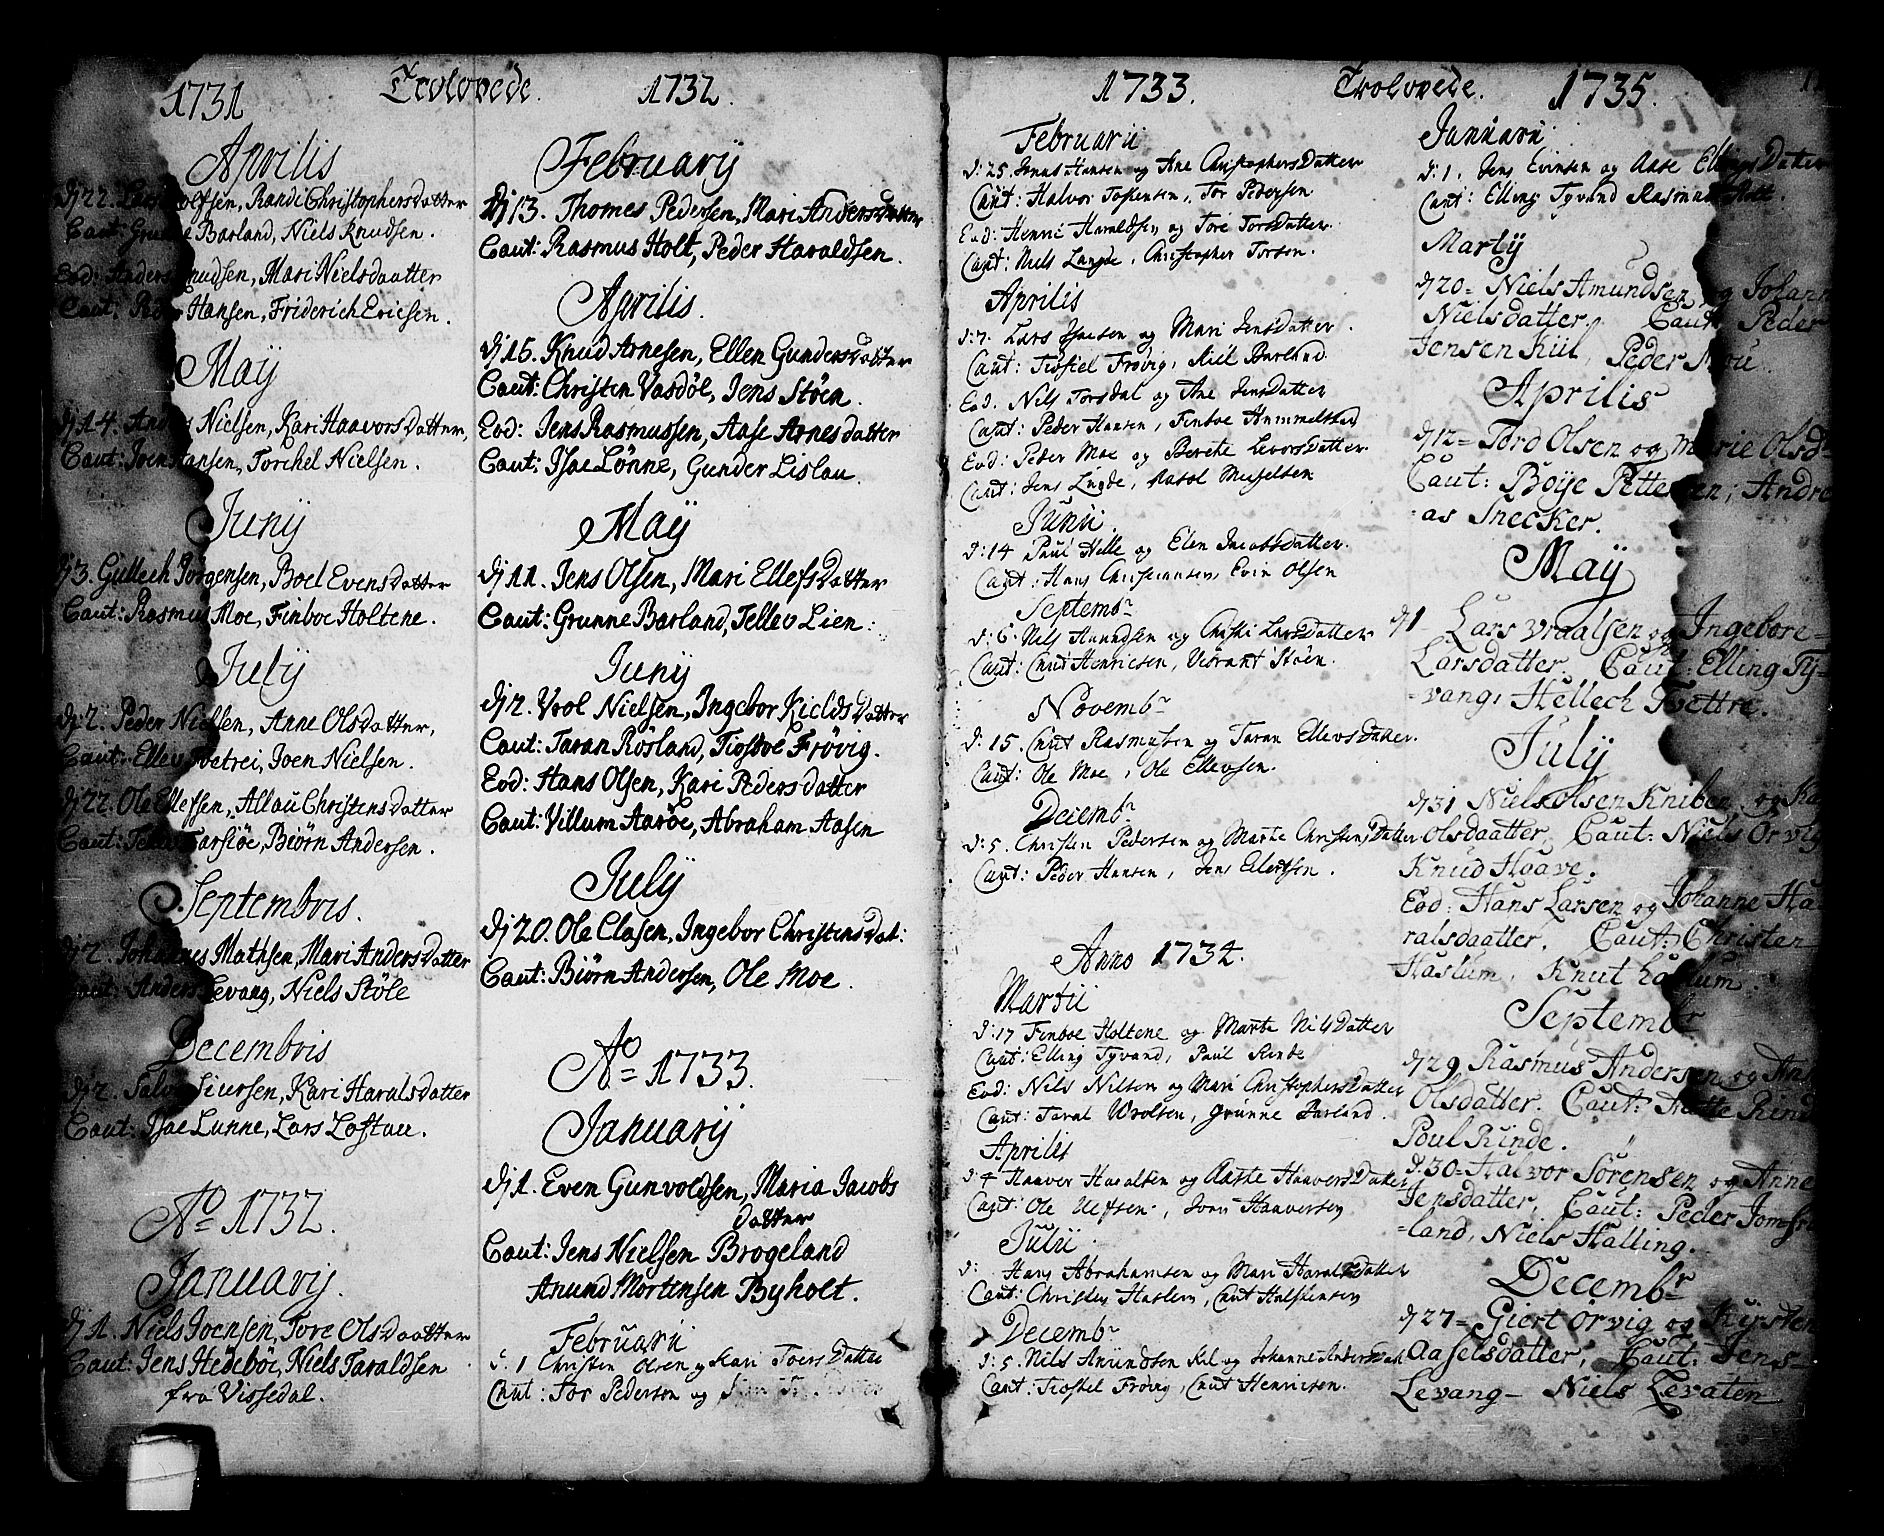 1731 Trolovede. 1732.
Aprilis
dj 22. Lars Olfsen, Randi Christophersdatter
Caut: Grunne Barland, Niels Knudsen.
Eod: Anders Knudsen, Mari Nielsdaatter
Caut: Hansen, Friderich Ericsen.
Maij
dj 14. Anders Nielsen, Kari Haavorsdatter,
Caut: Joen Hansen, Torchel Nielsen.
Junij
dj 3. Gullech Jörgensen, Boel Evensdatter
Caut: Rasmus Moe, Finboe Holtene.
Julij
dj 2. Peder Nielsen, Anne Olsdatter,
Caut: Ellev Tvetrei, Joen Nielsen.
dj 22. Ole Ellefsen, Allau Christensdatter
Caut: Biörn Andersen.
Septembris.
dj 2. Johannes Mathsen, Mari Andersdatter
Caut: Anders Levang, Niels Stöle
Decembris
dj 2. Siursen, Kari Haralsdatter
Caut: Isac Lunne, Lars Loftau.
Ao 1732.
Januarij.
dj 1. Niels Joensen, Tore Olsdaatter
Caut: Jens Hedeböe, Niels Taraldsen
fra Vissedal.
Februarij
dj 13. Thomes Pedersen, Mari Andersdatter
Caut: Rasmus Holt, Peder Haraldsen.
Aprilis.
dj 15. Knud Arnesen, Ellen Gundersdatter
Caut: Christen Vasdöl, Jens Stöen.
Eod: Jens Rasmussen, Aase Arnesdatter
Caut: Isac Lönne, Gunder Lislau.
Maij
dj 11. Jens Olsen, Mari Ellefsdatter
Caut: Grunne Barland, Tellev Lien:
Junij
dj 2. Vrol Nielsen, Ingebor Kieldsdatter
Caut: Taran Rösland, Tiostoe Frövig.
Eod: Hans Olsen, Kari Pedersdatter
Caut: Villum Aaröe, Abraham Aasen
Julij
dj 20. Ole Clasen, Ingebor Christensdat:
Caut: Biörn Andersen, Ole Moe.
Ao 1733.
Januarij
dj 1. Even Gunvoldsen, Maria Jacobs
datter
Caut: Jens Nielsen Brogeland
Anund Mortensen Byholt.
Februarii
d: 1 Christen Olsen og Kari Toersdatter
Caut: Tor Pedersen og
1733. Trolovede. 1735.
Februarii
d: 25. Jens Hansen og Ane Christophersdatter
Caut: Halvor Torkensen, Tor Pedersen
Eod: Henric Haraldsen og Tore Torsdatter
Caut: Niels Lunde, Christopher Torsen.
Aprilis
d: 7. Lars Isacsen og Mari Jensdatter.
Caut: Tiostel Frövig, Kiel Barland.
Eod. Nils Torsdal og Ane Jensdatter
Caut: Peder Hansen, Finboe Hummelstad
Eod: Peder Moe og Berethe Levorsdatter
Caut: Jens Lunde, Musselsen
Junii.
d: 14 Paul Helle og Elen Jacobsdatter.
Caut: Hans Christiansen, Evin Olsen
Septembr
d: 6. Nils Anundsen og Christi Larsdatter
Caut: Cnud Henricsen, Stöen.
Novembr
d: 15. Cnut Rasmussen og Taran Ellevsdatter.
Caut: Ole Moe, Ole Ellevsen.
Decembr
d: 5. Christen Pedersen og Marte Christensdatter
Caut: Peder Hansen, Jens Ellertsen.
Anno 1734.
Martii
d: 17 Finboe Holtene og Marte Nilsdatter
Caut: Elling Tyvand, Paul Rinde
Eod: Nils Nilsen og Mari Christophersdatter
Caut: Taral Wrolsen, Grunne Barland.
Aprilis
d: 4 Haaver Haralsen og Aaste Haaversdatter
Caut: Ole Uefsen, Iven Haaversen
Julii.
d: Hans Abrahamsen og Mari Haralsdatter
Caut: Christen Haslem, Cnut Halstensen
Decembr
d: 5. Nils Anundsen Kil og Johanne Andersdat
Caut: Tiostel Frövig, Cnut Henricsen.
Januarii
d: 1. Jens Evinsen og Aase Ellingsdatter
Caut: Elling Tyvand Rasmus Holt.
Martij
dj 20= Niels Amundsen og Johann
Nielsdatter. Caut: Peder
Jensen Kiil, Peder Mou.
Aprilis
dj 12= Tord Olsen og Marie Olsd=
Caut: Böye Pettersen; Andre
=as Snecker.
Maij
dj 1= Lars Vraalsen og Ingebore=
Larsdatter. Caut: Elling Ty=
=vang, Hellech Tvettre.
Julij
dj 31 Niels Olsen Kniben og Ka
Olsdaatter, Caut: Niels Örvig
Knud Hoave.
Eod: Hans Larsen og Johanne Ha
ralsdaatter. Caut: Christen
Haslum, Knut Haslum.
Septembr
dj 29 Rasmus Andersen og An
Olsdatter. Caut: Rind
Poul Rinde.
d. 30= Halvor Sörensen og Anne
Jensdatter, Caut: Peder Jomfru
=land, Niels Halling.
Decembr
dj 27= Giert Örvig og Kirsten
Aaselsdatter, Caut: Jens=
Levang= Niels Levaten